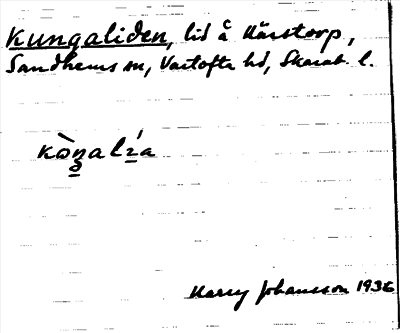 Kungaliden, lid å Kärstorp,
Sandhems sn, Vartofta hd, Skarab. l.
Harry Johansson 1936